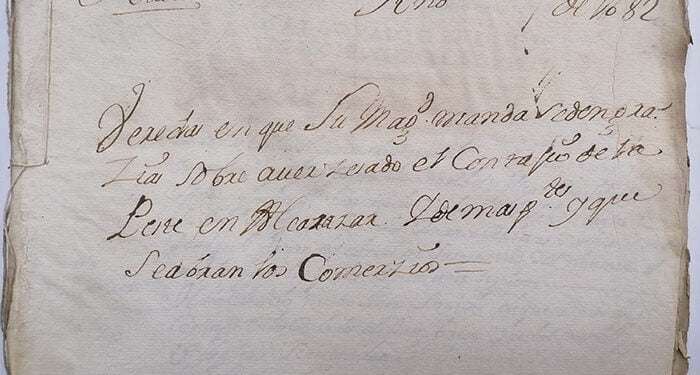 Año de 1682
en que Su Magd. manda se den gra
zias sobre aver zesado el Contagio de la
Peste en Alcarazar. y demas ptes y que
se abran los Comerzios